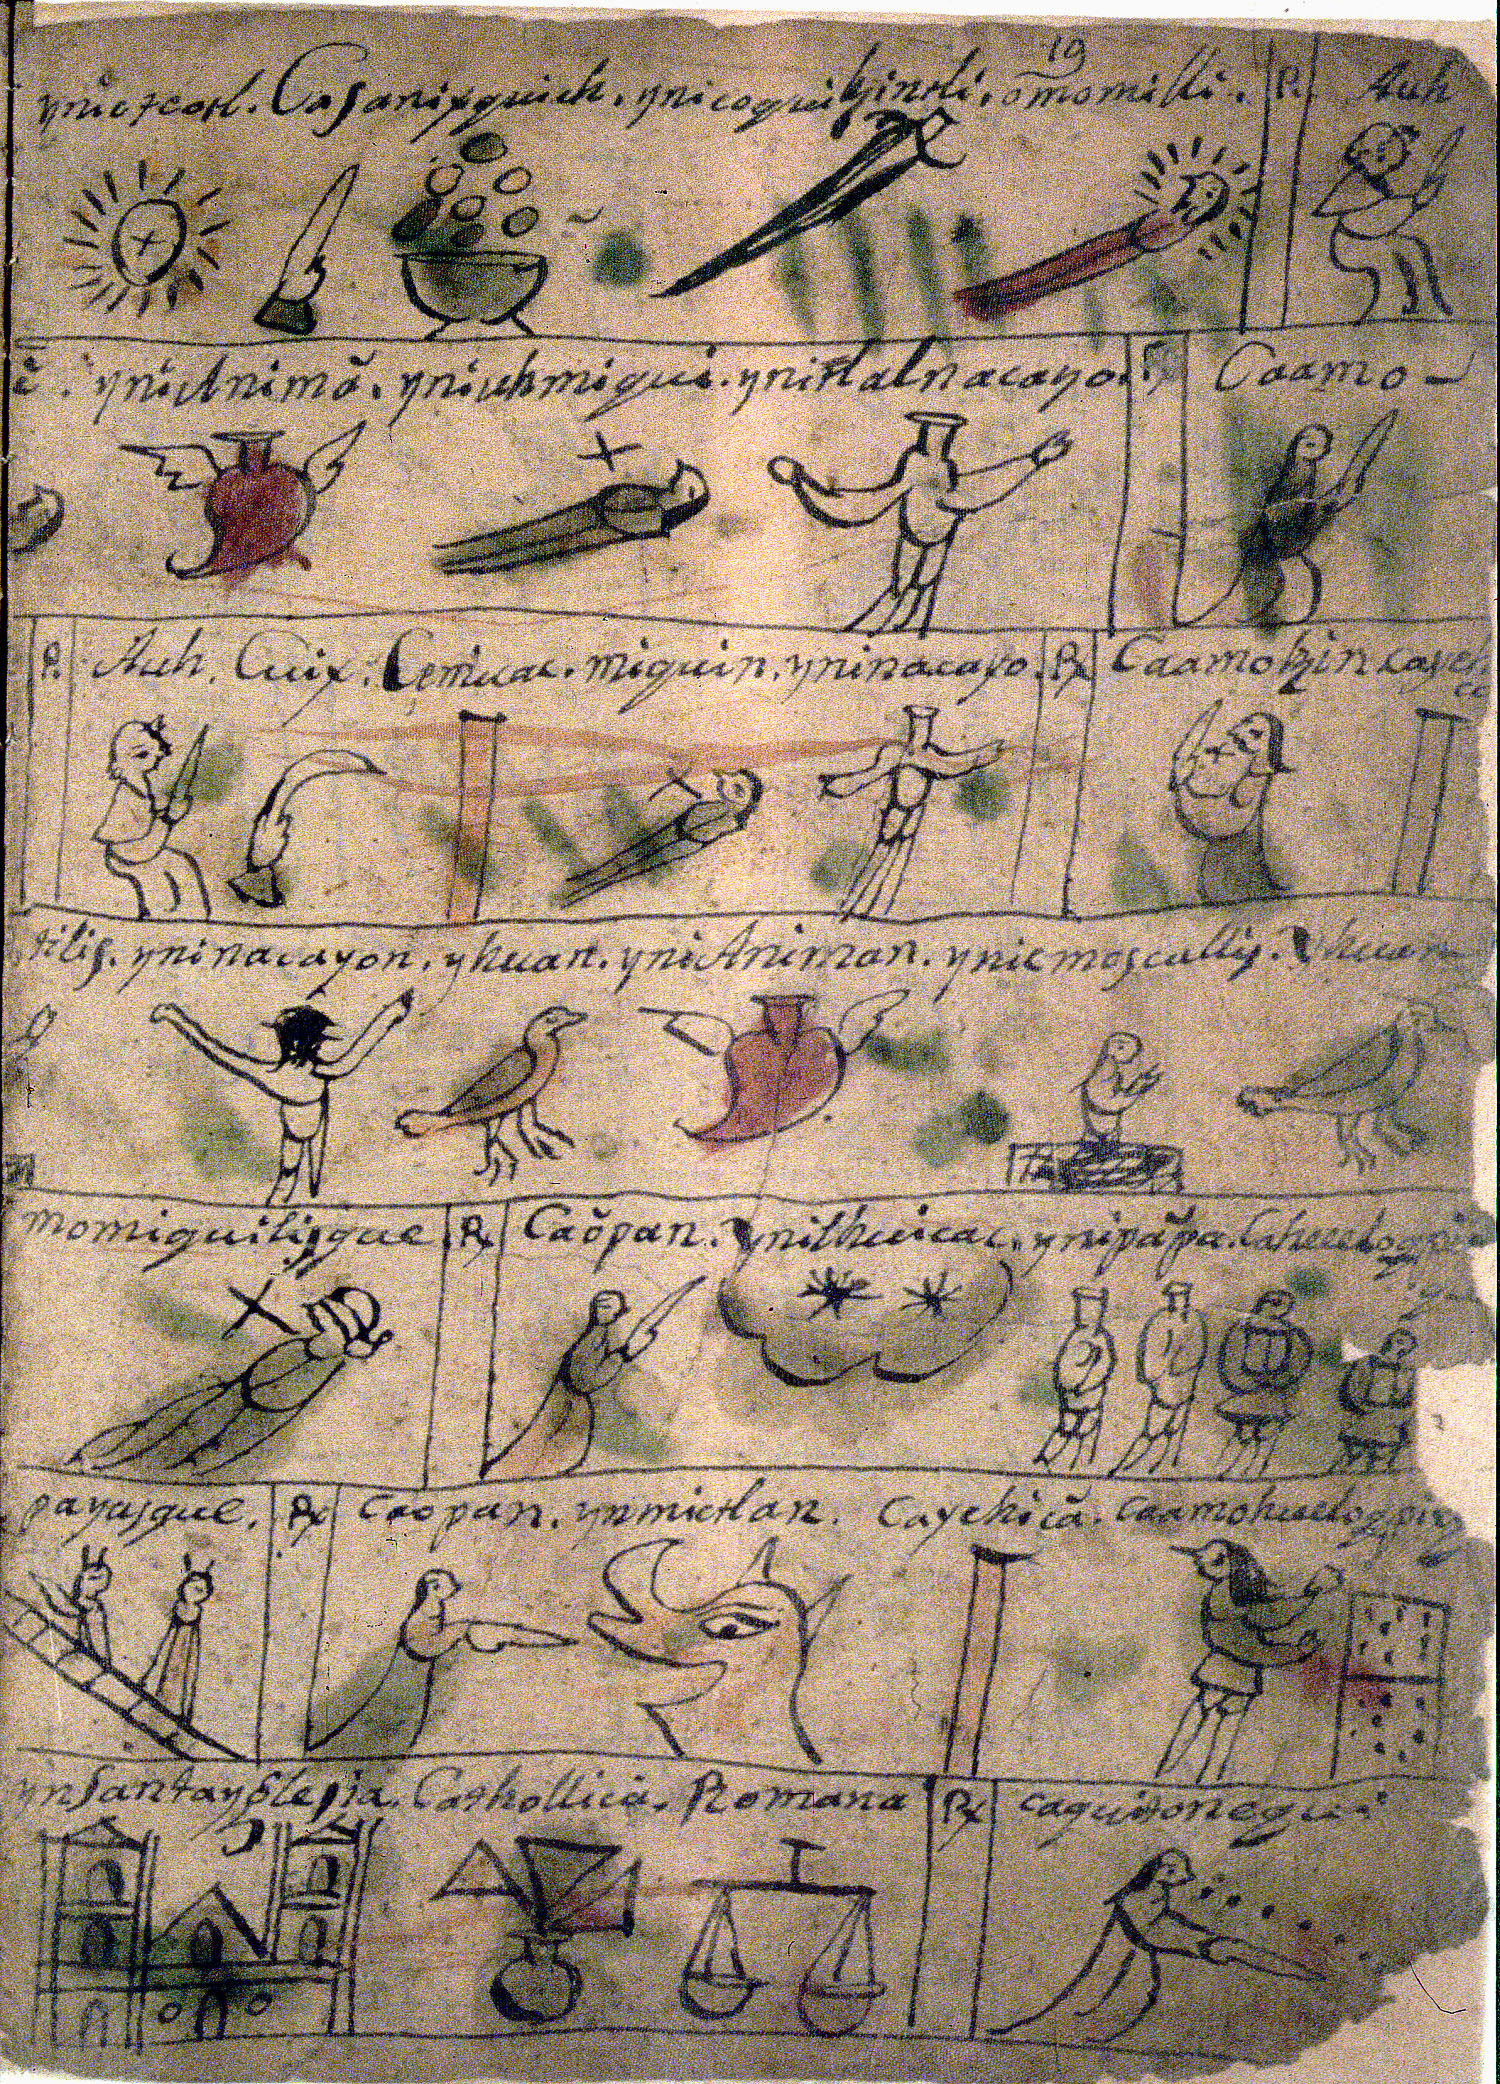 19
yniɔtcotl. Caſanixquich. ynicoquihzintli. omomilli. R. Auh
ĕ. yniAnimă. yniuhmiqui. ynitlalnacayo. R Caamo –
R Auh. Cuix. Cemicac. miquin. yninacayo. Rx Caamotzin cayeh
ca
tilis. yninacayon. yhuan. yniAniman. ynicmoscallis. Yhuan
momiquilisque Rx Caŏpan. ynilhuicac. ynipăpa. Cahuel
payasque. Rx caopan. ynmictlan. Cayehică. caamohuel
ynSantayglesia. Cathollica. Romana Rx caquitonequi